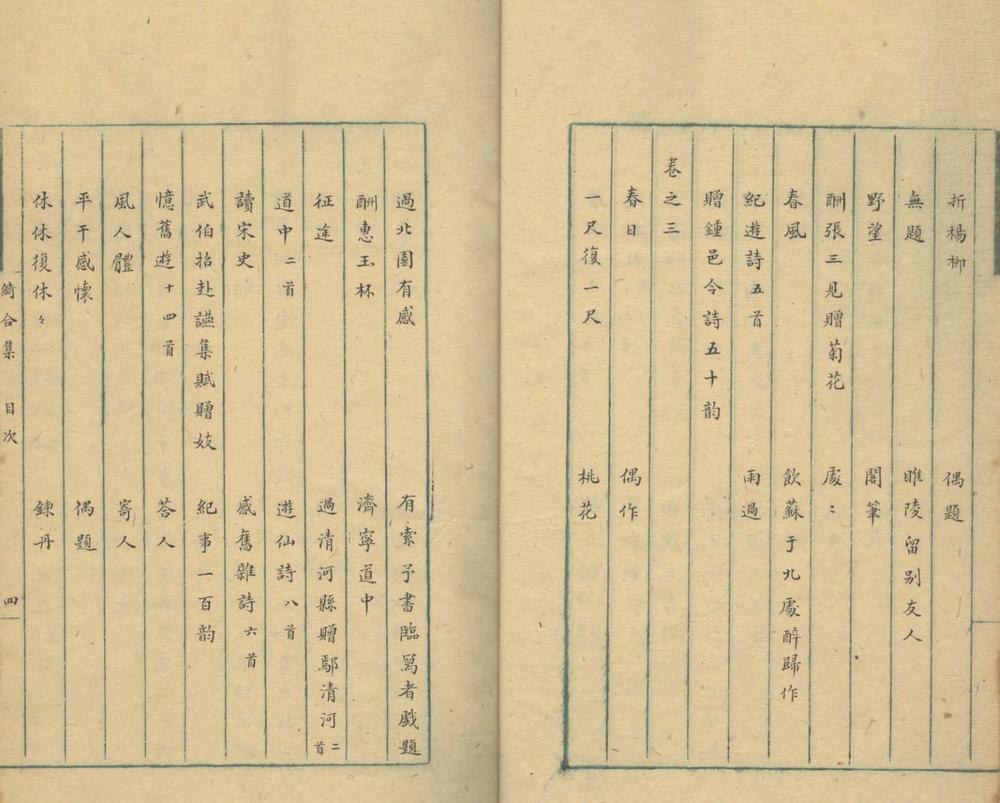 折楊柳 偶題
無題 睢陵留別友人
野望 閣筆
酬張三見贈菊花 處〻
春風 飲蘇于九處醉歸作
紀遊詩五首 雨過
贈鍾邑令詩五十韵
卷之三
春日 偶作
一尺復一尺 桃花
過北園有感 有索予書臨寫者戲題
酬惠玉杯 濟寧道中
征途 過清河縣贈鄢清河二首
道中二首 遊仙詩八首
讀宋史 感舊雜詩六首
武伯招赴讌集賦贈妓 紀事一百韵
憶舊遊十四首 荅人
風人體 寄人
平干感懷 偶題
休休復休々 鍊丹
綺合集 目次 四